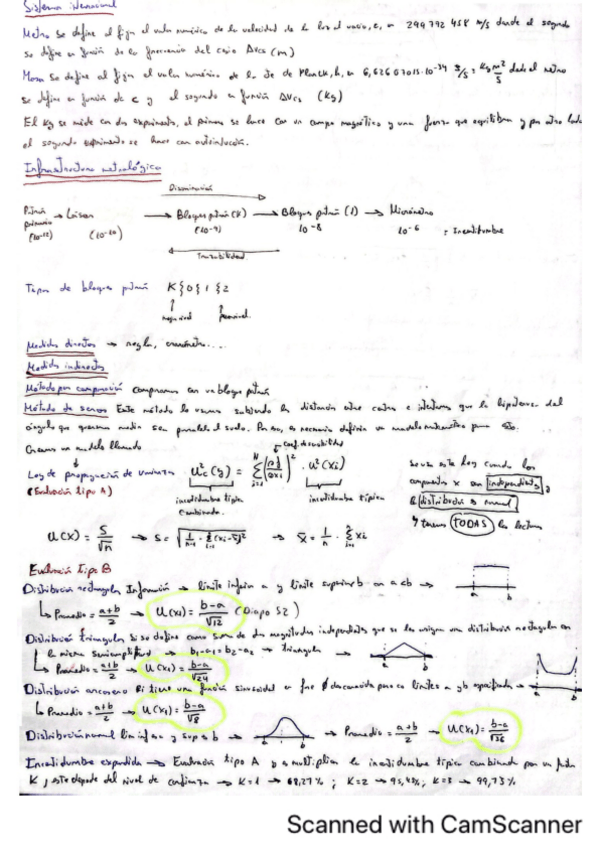 Sistema internacional
Metro se define al fijar el valor numérico de la velocidad de la luz al vacío, c, en 299 792 458 m/s donde el segundo
se define en función de la frecuencia del cesio ΔVcs (m)
Masa se define al fijar el valor numérico de la cte de Planck, h, en 6,62607015·10⁻³⁴ J/s = Kg m²/s dado el metro
se define en función de c y el segundo en función ΔVcs (Kg)
El Kg se mide con dos experimentos, el primero se hace con un campo magnético y una fuerza que equilibra y por otro lado
el segundo experimento se hace con autoinducción.
Infraestructura metrológica
Diseminación
Patrón primario → Laser → Bloques patrón (K) → Bloques patrón (1) → Micrómetro
(10⁻¹²) (10⁻¹⁰) (10⁻⁹) 10⁻⁸ 10⁻⁶ = Incertidumbre
Trazabilidad
Tipos de bloques patrón K{0{1{2
Medidas directas → regla, micrómetro....
Medidas indirectas
Método por comparación comparamos con un bloque patrón
Método de senos Este método lo usamos sabiendo la distancia entre centros e que la hipotenusa del
ángulo que queremos medir sea paralela al suelo. Por eso, es necesario definir un modelo matemático para
Creamos un modelo llamado
coef. de sensibilidad
Ley de propagación de varianzas u²c(y) = Σ(∂f/∂xi)² · u²(xi)
(Evaluación tipo A)
incertidumbre típica combinada incertidumbre típica
Se usa esta ley cuando los
componentes x son independientes y
la distribución es normal
y tenemos TODAS las lecturas
u(x) = S/√n → S = √(1/(n-1) · Σ(xi-x̄)²) → x̄ = 1/n · Σ xi
Evaluación Tipo B
Distribución rectangular Información → límite inferior a y límite superior b con a<b →
↳ Promedio = (a+b)/2 → u(xi) = (b-a)/√12 (Diapo 52)
Distribución triangular Si se define como suma de dos magnitudes independientes que se les asigna una distribución rectangular con
la misma semiamplitud → b₁-a₁ = b₂-a₂ → triangular →
↳ Promedio = (a+b)/2 → u(xi) = (b-a)/√24
Distribución arcoseno Si tiene una función sinusoidal en fase Φ desconocida para los límites a y b especificada →
↳ Promedio = (a+b)/2 → u(xi) = (b-a)/√8
Distribución normal lim inf a y sup b → → Promedio = (a+b)/2 → u(xi) = (b-a)/√36
Incertidumbre expandida → Evaluación tipo A y a multiplicar la incertidumbre típica combinada por un factor
K, este depende del nivel de confianza → K=1 → 68,27% ; K=2 → 95,45% ; K=3 → 99,73%
Scanned with CamScanner